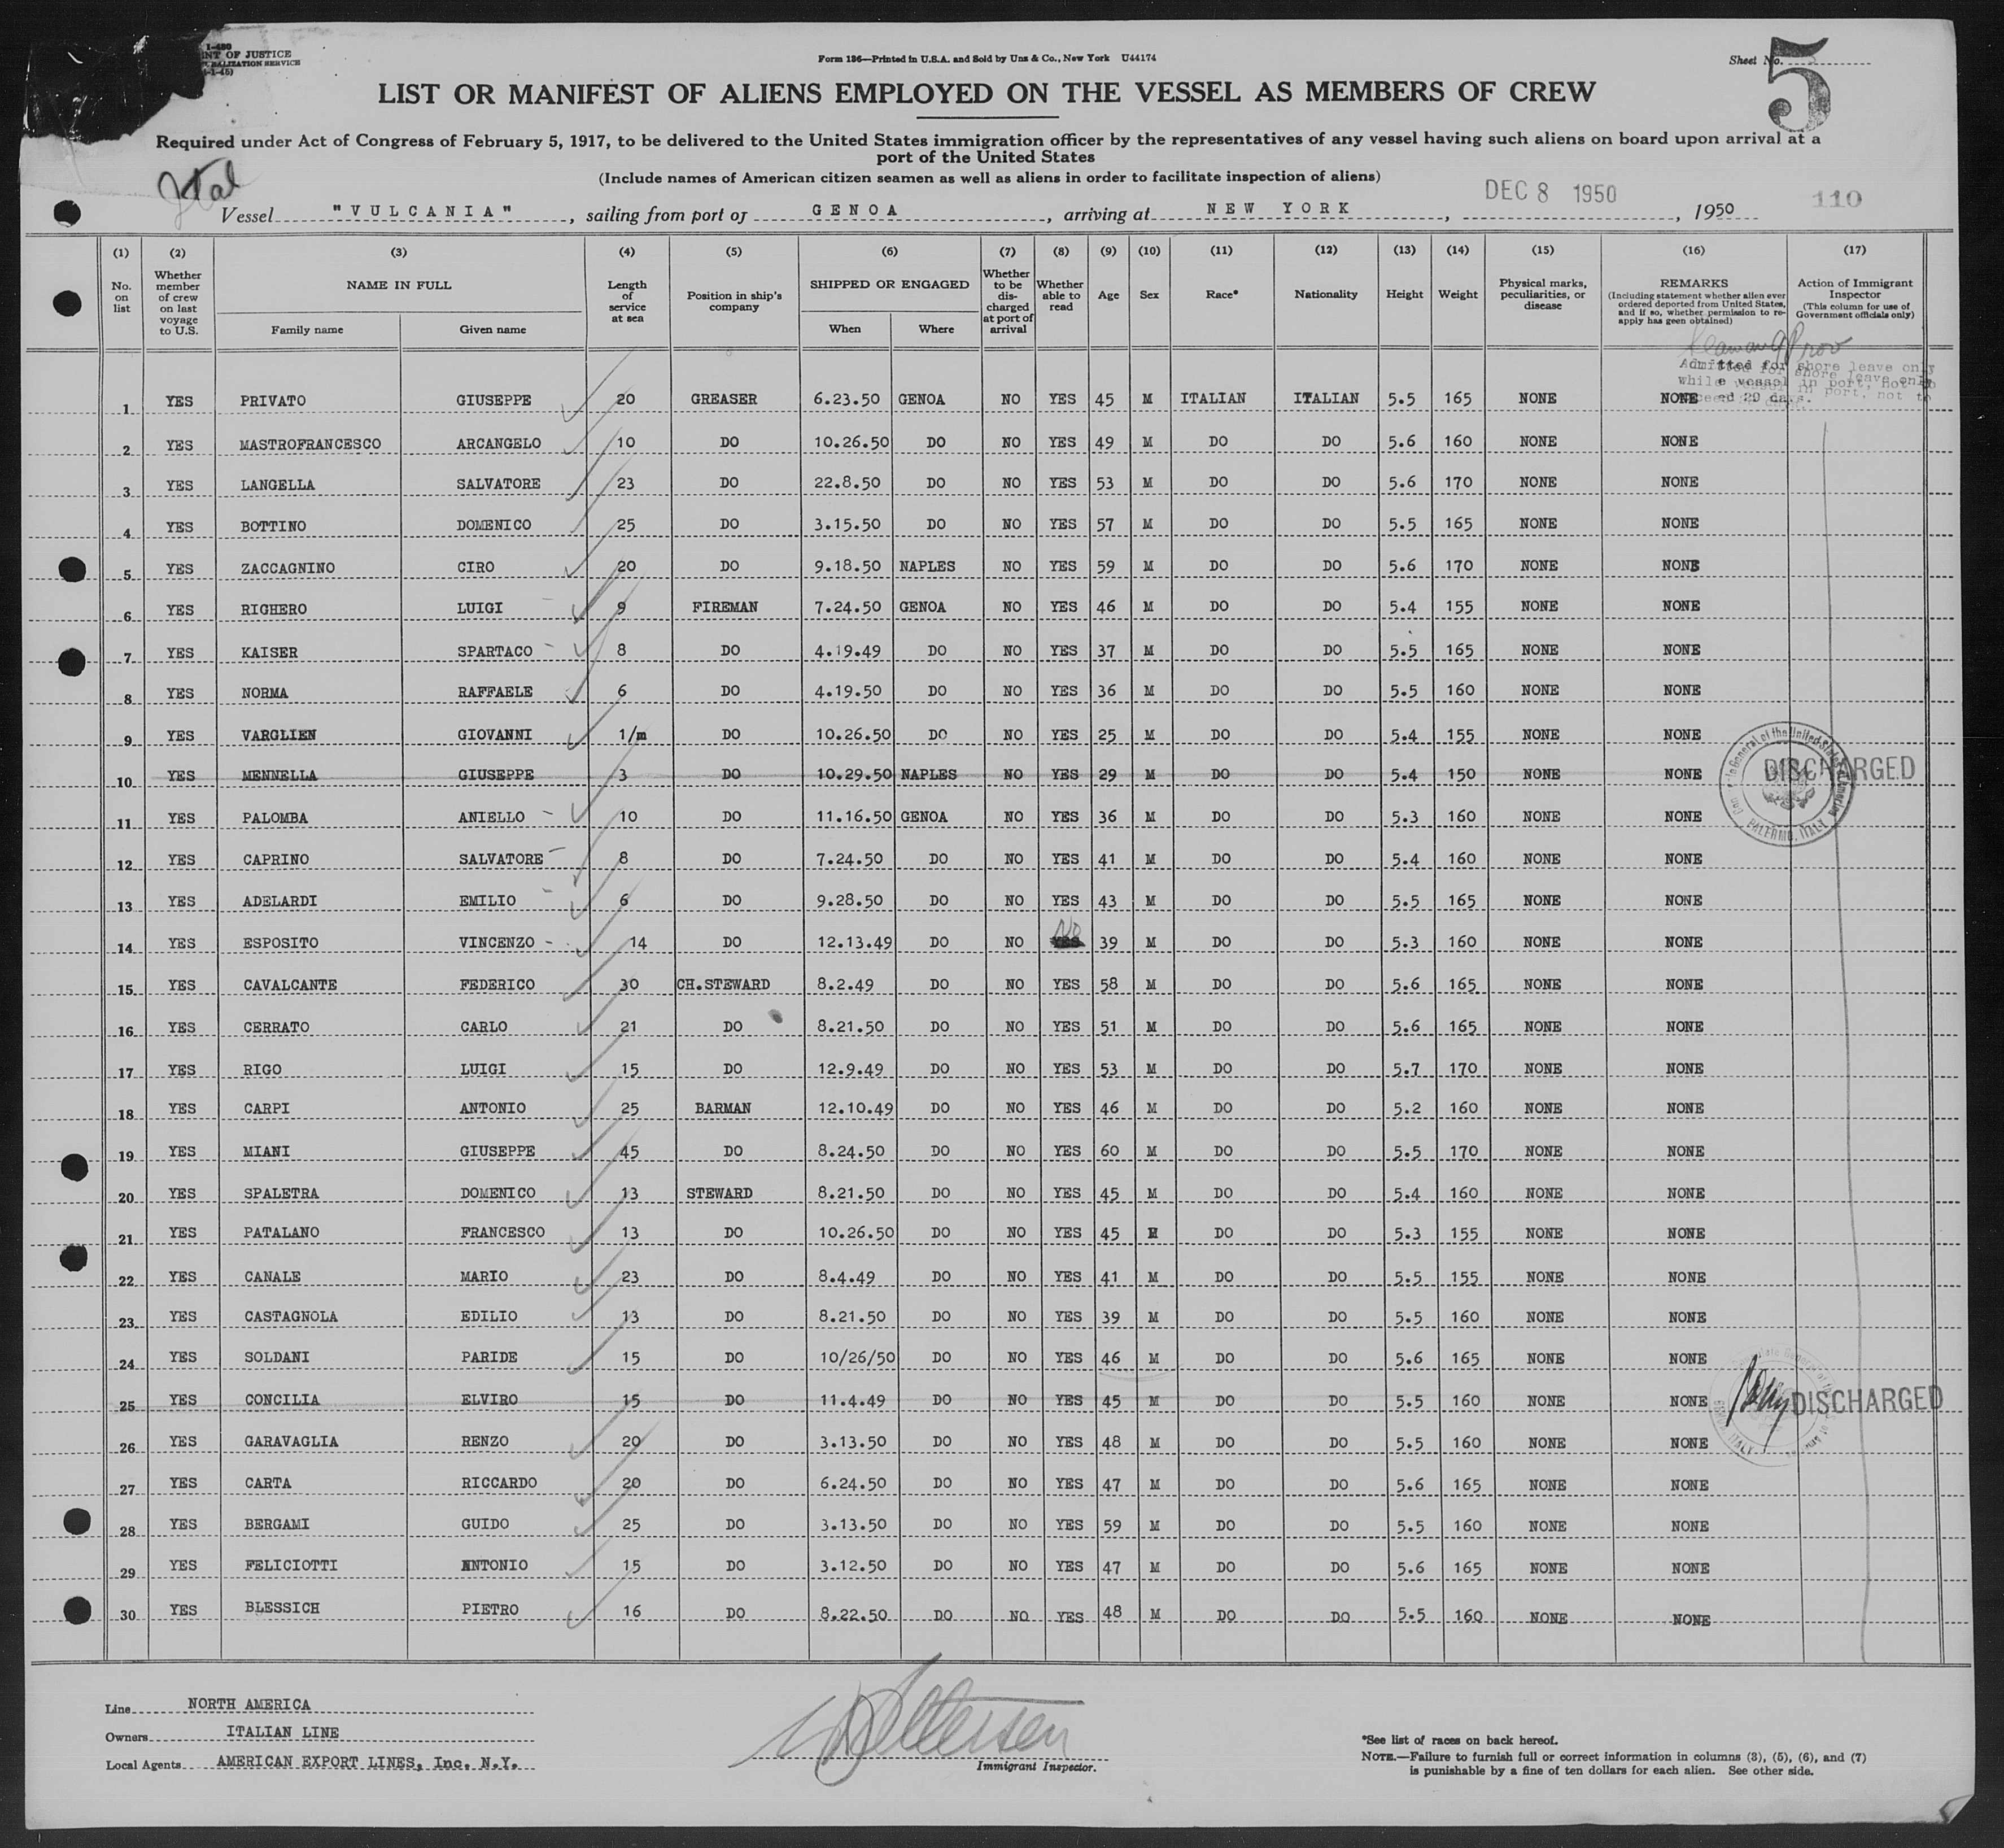 1-480
NT OF JUSTICE
ALIZATION SERVICE
-1-45)
Form 186—Printed in U.S.A. and Sold by Unz & Co., New York U44174
Sheet No. 5
LIST OR MANIFEST OF ALIENS EMPLOYED ON THE VESSEL AS MEMBERS OF CREW
Required under Act of Congress of February 5, 1917, to be delivered to the United States immigration officer by the representatives of any vessel having such aliens on board upon arrival at a
port of the United States
(Include names of American citizen seamen as well as aliens in order to facilitate inspection of aliens)
Ital
Vessel "VULCANIA", sailing from port of GENOA, arriving at NEW YORK, DEC 8 1950, 1950 110
(1) (2) (3) (4) (5) (6) (7) (8) (9) (10) (11) (12) (13) (14) (15) (16) (17)
No. on list
Whether member of crew on last voyage to U.S.
NAME IN FULL
Family name
Given name
Length of service at sea
Position in ship's company
SHIPPED OR ENGAGED
When
Where
Whether to be discharged at port of arrival
Whether able to read
Age
Sex
Race*
Nationality
Height
Weight
Physical marks, peculiarities, or disease
REMARKS
(Including statement whether alien ever ordered deported from United States, and if so, whether permission to re-apply has geen obtained)
Action of Immigrant Inspector
(This column for use of Government officials only)
Admitted for shore leave only
while vessel in port, not to
exceed 29 days.
1 YES PRIVATO GIUSEPPE 20 GREASER 6.23.50 GENOA NO YES 45 M ITALIAN ITALIAN 5.5 165 NONE NONE
2 YES MASTROFRANCESCO ARCANGELO 10 DO 10.26.50 DO NO YES 49 M DO DO 5.6 160 NONE NONE
3 YES LANGELLA SALVATORE 23 DO 22.8.50 DO NO YES 53 M DO DO 5.6 170 NONE NONE
4 YES BOTTINO DOMENICO 25 DO 3.15.50 DO NO YES 57 M DO DO 5.5 165 NONE NONE
5 YES ZACCAGNINO CIRO 20 DO 9.18.50 NAPLES NO YES 59 M DO DO 5.6 170 NONE NONE
6 YES RIGHERO LUIGI 9 FIREMAN 7.24.50 GENOA NO YES 46 M DO DO 5.4 155 NONE NONE
7 YES KAISER SPARTACO 8 DO 4.19.49 DO NO YES 37 M DO DO 5.5 165 NONE NONE
8 YES NORMA RAFFAELE 6 DO 4.19.50 DO NO YES 36 M DO DO 5.5 160 NONE NONE
9 YES VARGLIEN GIOVANNI 1/m DO 10.26.50 DO NO YES 25 M DO DO 5.4 155 NONE NONE
10 YES MENNELLA GIUSEPPE 3 DO 10.29.50 NAPLES NO YES 29 M DO DO 5.4 150 NONE NONE DISCHARGED
General of the United States of America
PALERMO, ITALY
11 YES PALOMBA ANIELLO 10 DO 11.16.50 GENOA NO YES 36 M DO DO 5.3 160 NONE NONE
12 YES CAPRINO SALVATORE 8 DO 7.24.50 DO NO YES 41 M DO DO 5.4 160 NONE NONE
13 YES ADELARDI EMILIO 6 DO 9.28.50 DO NO YES 43 M DO DO 5.5 165 NONE NONE
14 YES ESPOSITO VINCENZO 14 DO 12.13.49 DO NO No YES 39 M DO DO 5.3 160 NONE NONE
15 YES CAVALCANTE FEDERICO 30 CH.STEWARD 8.2.49 DO NO YES 58 M DO DO 5.6 165 NONE NONE
16 YES CERRATO CARLO 21 DO 8.21.50 DO NO YES 51 M DO DO 5.6 165 NONE NONE
17 YES RIGO LUIGI 15 DO 12.9.49 DO NO YES 53 M DO DO 5.7 170 NONE NONE
18 YES CARPI ANTONIO 25 BARMAN 12.10.49 DO NO YES 46 M DO DO 5.2 160 NONE NONE
19 YES MIANI GIUSEPPE 45 DO 8.24.50 DO NO YES 60 M DO DO 5.5 170 NONE NONE
20 YES SPALETRA DOMENICO 13 STEWARD 8.21.50 DO NO YES 45 M DO DO 5.4 160 NONE NONE
21 YES PATALANO FRANCESCO 13 DO 10.26.50 DO NO YES 45 M DO DO 5.3 155 NONE NONE
22 YES CANALE MARIO 23 DO 8.4.49 DO NO YES 41 M DO DO 5.5 155 NONE NONE
23 YES CASTAGNOLA EDILIO 13 DO 8.21.50 DO NO YES 39 M DO DO 5.5 160 NONE NONE
24 YES SOLDANI PARIDE 15 DO 10/26/50 DO NO YES 46 M DO DO 5.6 165 NONE NONE
25 YES CONCILIA ELVIRO 15 DO 11.4.49 DO NO YES 45 M DO DO 5.5 160 NONE NONE DISCHARGED
26 YES GARAVAGLIA RENZO 20 DO 3.13.50 DO NO YES 48 M DO DO 5.5 160 NONE NONE
27 YES CARTA RICCARDO 20 DO 6.24.50 DO NO YES 47 M DO DO 5.6 165 NONE NONE
28 YES BERGAMI GUIDO 25 DO 3.13.50 DO NO YES 59 M DO DO 5.5 160 NONE NONE
29 YES FELICIOTTI ANTONIO 15 DO 3.12.50 DO NO YES 47 M DO DO 5.6 165 NONE NONE
30 YES BLESSICH PIETRO 16 DO 8.22.50 DO NO YES 48 M DO DO 5.5 160 NONE NONE
Line NORTH AMERICA
Owners ITALIAN LINE
Local Agents AMERICAN EXPORT LINES, Inc. N.Y.
Immigrant Inspector.
*See list of races on back hereof.
NOTE.—Failure to furnish full or correct information in columns (3), (5), (6), and (7)
is punishable by a fine of ten dollars for each alien. See other side.